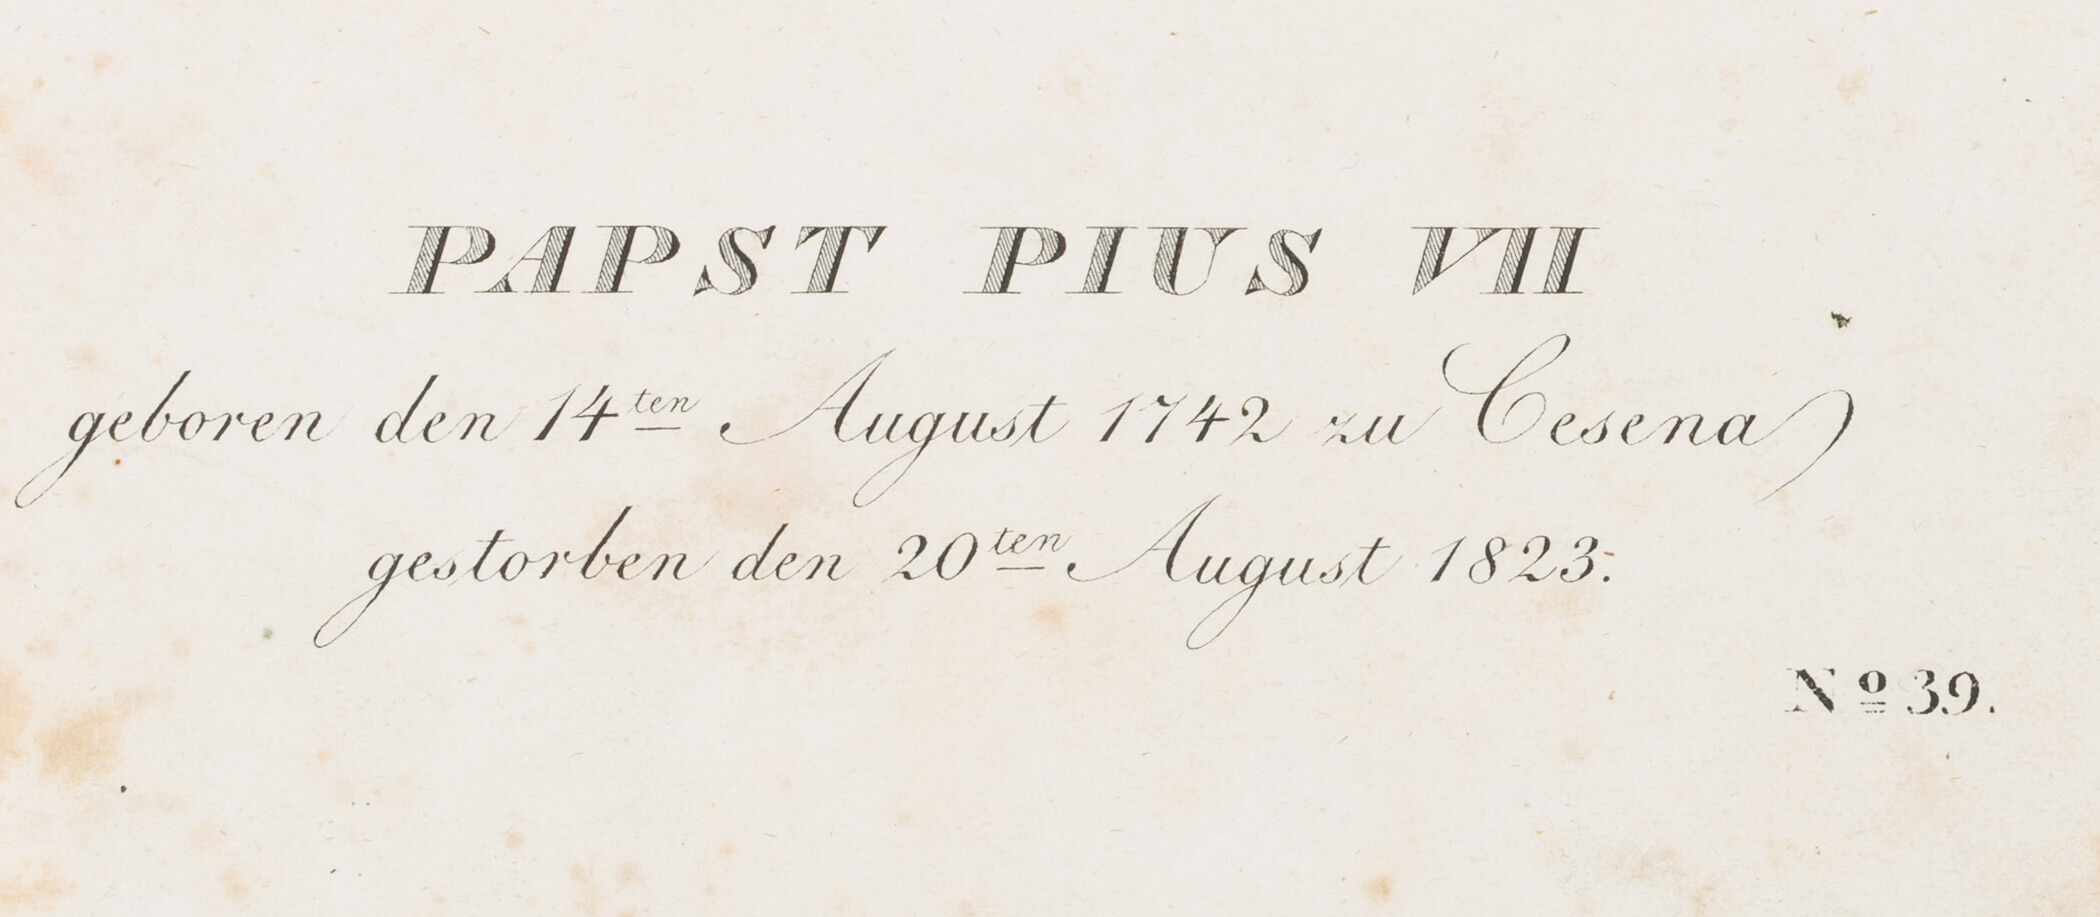 PAPST PIUS VII
geboren den 14ten August 1742 zu Cesena
gestorben den 20ten August 1823.
No 39.